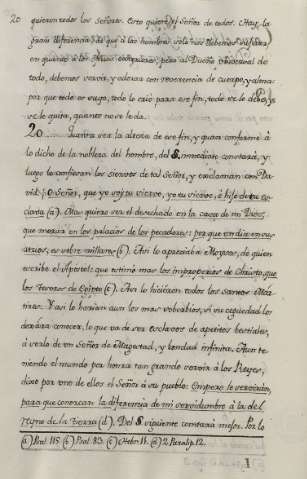 20
quieran todos los Señores. Esto quiere el Señor de todos. Hay la
gran diferencia de que à los hombres solamente debemos
en quanto à los pero al Dueño universal de
todo, debemos verlo, y adorar con reverencia de cuerpo, y alma
por que todo es suyo, todo lo crió para ese fin, todo se le debe, y
se le quita, quando no se le da.
20.... Quien vea la alteza de ese fin, y quan conforme à
lo dicho de la nobleza del hombre, del §. inmediato constará, y
luego lo confiesan los siervos de tal Señor, y exclaman con Da-
vid: O Señor, que yo soy tu siervo, yo tu siervo, è hijo de tu es-
clava (a). Mas quiero ser el desechado en la casa de mi Dios,
que morar en los palacios de los pecadores: por que un dia en sus
atrios, es sobre millares (b). Asi lo apreciaba Moyses, de quien
escribe el Apostol: que estimó mas los improperios de Christo, que
los Tesoros de Egipto (c). Asi lo hicieron todos los Santos Már-
tires. Y asi lo harian aun los mas soberbios, si su ceguedad los
dexára conocer, lo que va de ser esclavos de apetitos bestiales,
à serlo de un Señor de Magestad, y bondad infinita. Aun te-
niendo el mundo por honra tan grande servir à los Reyes,
dixo por uno de ellos el Señor à su pueblo: Empero le serviràn,
para que conozcan la diferencia de mi servidumbre à la del
Reyno de la tierra (d). Del §. siguiente constará mejor. Por lo
(a) Psal. 115. (b) Psal. 83. (c) Hebr. 11. (d) 2. Paralip. 12.